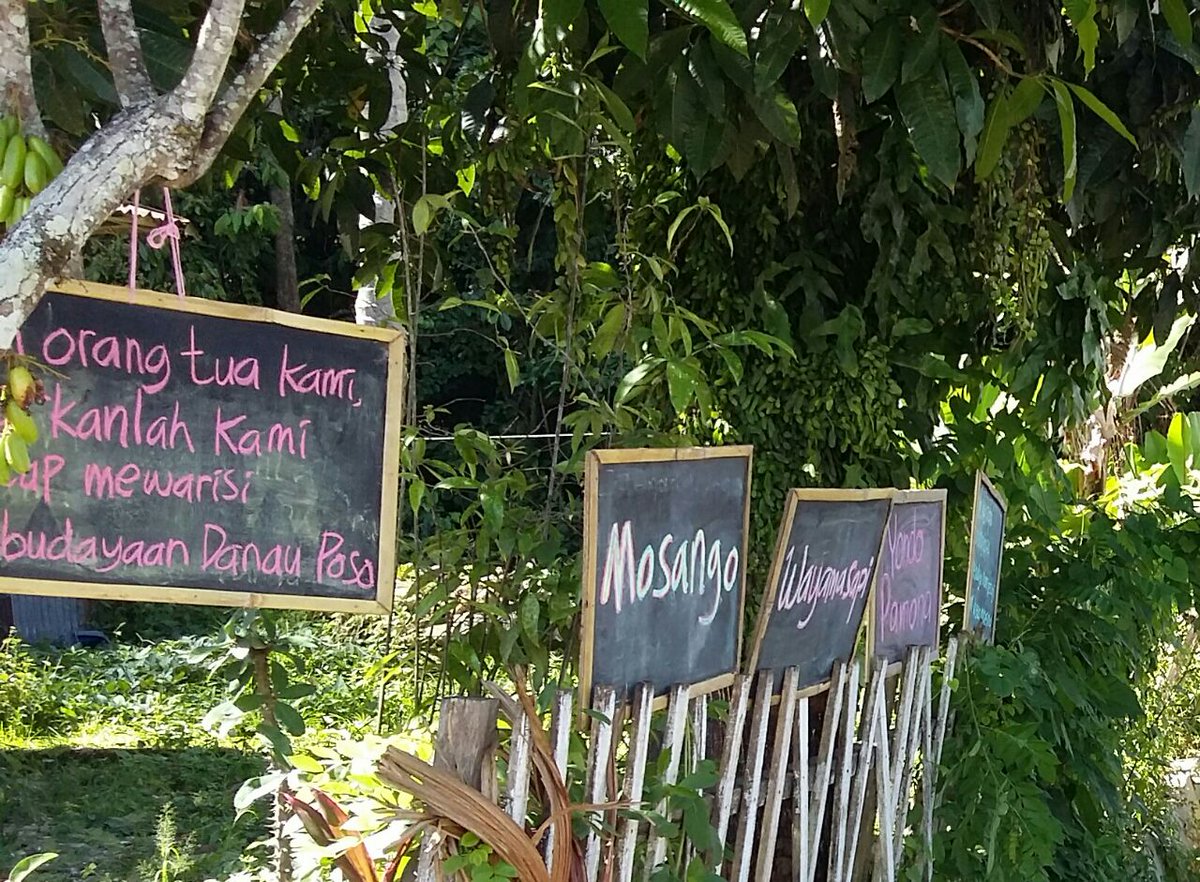 orang tua kami,
kanlah kami
mewarisi
budayaan Danau Poso
Mosango
Wayamasapi
Yondo
Pamona